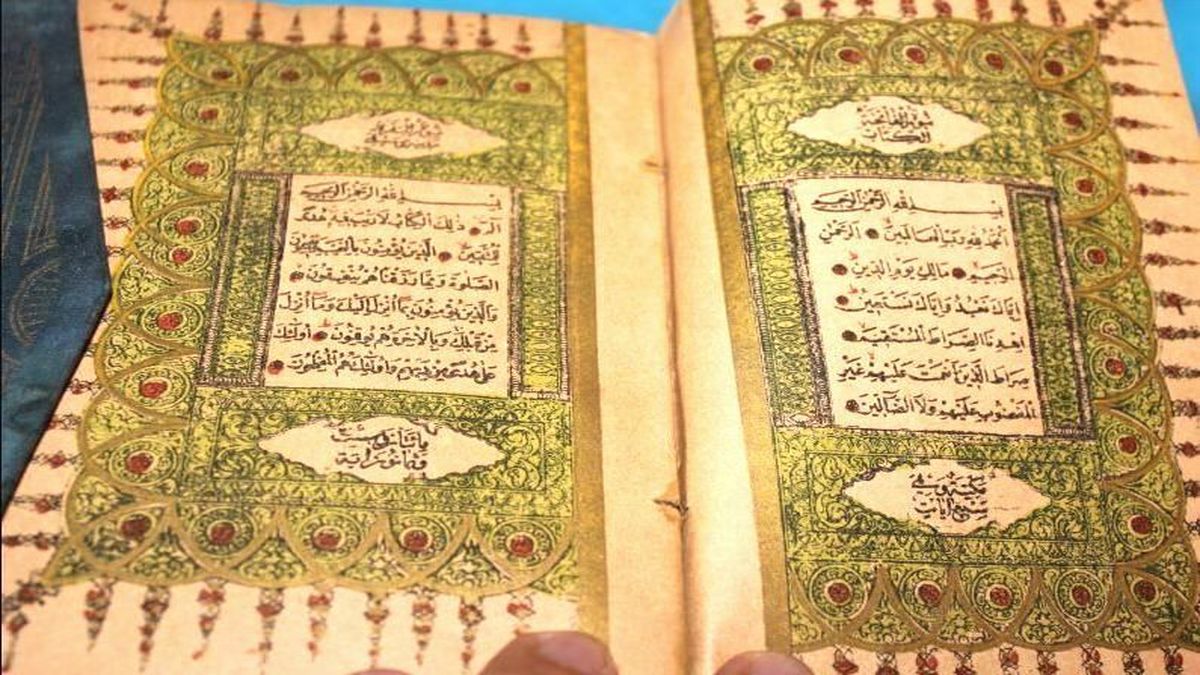 سورة الفاتحة
الكتاب
بسم الله الرحمن الرحيم
الحمد لله رب العالمين الرحمن
الرحيم مالك يوم الدين
إياك نعبد وإياك نستعين
اهدنا الصراط المستقيم
صراط الذين أنعمت عليهم غير
المغضوب عليهم ولا الضالين
مكية وهي
سبع آيات
سورة البقرة
بسم الله الرحمن الرحيم
الم ذلك الكتاب لا ريب فيه هدى
للمتقين الذين يؤمنون بالغيب ويقيمون
الصلوة ومما رزقناهم ينفقون
والذين يؤمنون بما أنزل إليك وما أنزل
من قبلك وبالآخرة هم يوقنون أولئك
على هدى من ربهم وأولئك هم المفلحون
مائتان وست
وثمانون آية